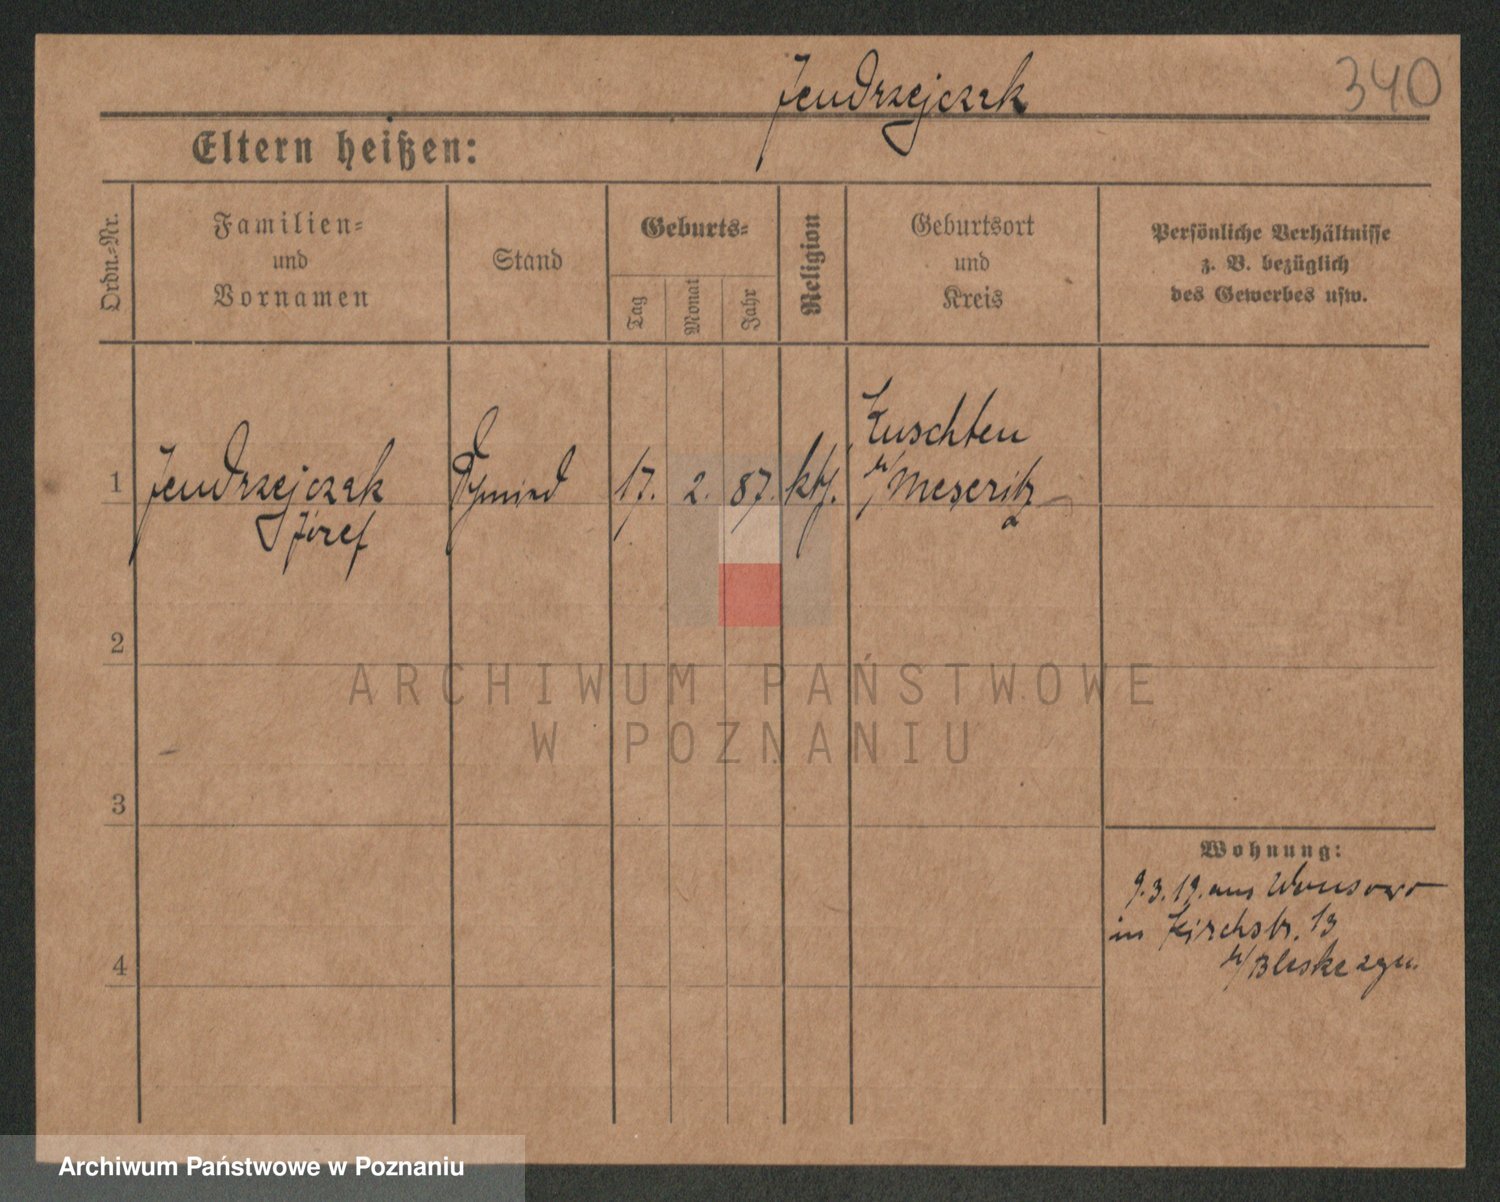 Jendrzejczak
340
Eltern heißen:
Ordn.-Nr.
Familien-
und
Vornamen
Stand
Geburts-
Tag
Monat
Jahr
Religion
Geburtsort
und
Kreis
Persönliche Verhältnisse
z. B. bezüglich
des Gewerbes usw.
1
Jendrzejczak
Józef
Schmied
17.
2.
87.
kth.
Kuschten
Meseritz
2
3
4
Wohnung:
9.3.19. aus Wonsowo
in Kirchstr. 13
ARCHIWUM PAŃSTWOWE
W POZNANIU
Archiwum Państwowe w Poznaniu